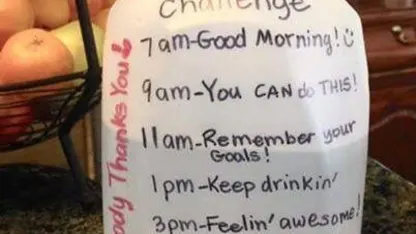 Challenge
7am-Good Morning! ☺
9am-You CAN do THIS!
11am-Remember your
Goals!
1pm-Keep drinkin'
3pm-Feelin' awesome!
ody Thanks You